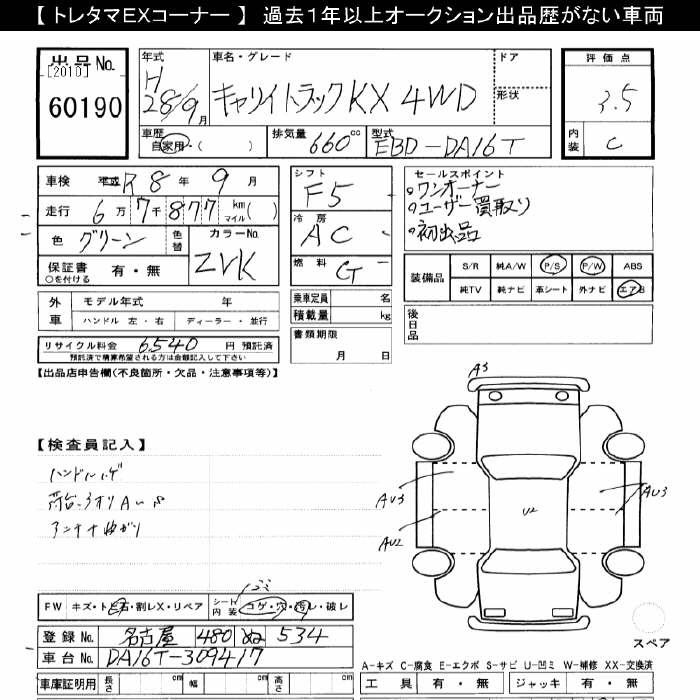 【 トレタマEXコーナー 】 過去1年以上オークション出品歴がない車両
出品No.
[2010]
60190
年式
H
28/9月
車名・グレード
キャリイトラックKX 4WD
ドア
形状
車歴
自家用・( )
排気量
660cc
型式
EBD-DA16T
評価点
3.5
内装
C
車検 平成 R8年 9月
走行 6万7千877 km マイル( )
色 グリーン 色替
カラーNo.
ZVK
保証書
○を付ける
有・無
シフト
F5
冷房
AC
燃料
G
セールスポイント
○ワンオーナー
○ユーザー買取り
○初出品
装備品
S/R 純A/W P/S P/W ABS
純TV 純ナビ 革シート 外ナビ エアB
外車
モデル年式 年
ハンドル 左・右 ディーラー・並行
乗車定員 名
積載量 kg
書類期限
月 日
後日品
リサイクル料金 6540 円 預託済
預託済で精算希望される方は金額記入して下さい
【出品店申告欄(不良箇所・欠品・注意事項等)】
【検査員記入】
ハンドルハゲ
アンテナ曲がり
A3
AU3
AU2
U2
AU3
スペア
FW キズ・ト石・割レX・リペア
シート内装 コゲ・穴・汚レ・破レ
登録No. 名古屋 480 ぬ 534
車台No. DA16T-309417
車庫証明用 長さ cm 幅 cm 高さ cm
A-キズ C-腐食 E-エクボ S-サビ U-凹ミ W-補修 XX-交換済
工具 有・無 ジャッキ 有・無